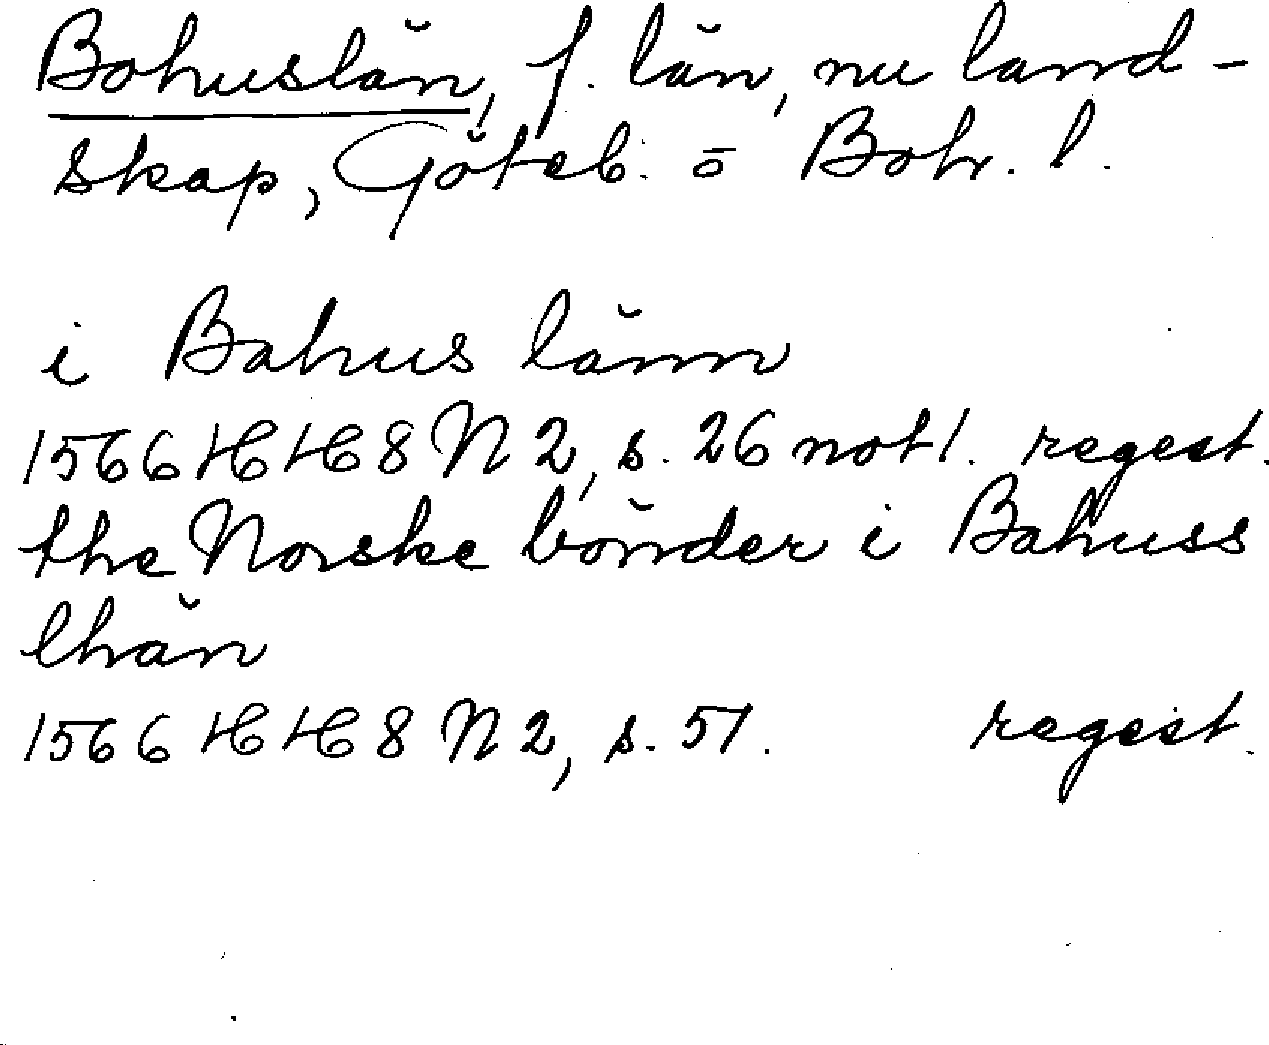 Bohuslän, f. län, nu land-
skap, Göteb. o Boh. l.
i Bahus länn
1566 HH 8 N 2, s. 26 not 1. regest.
the Norske bönder i Bahuss
lhän
1566 HH 8 N 2, s. 51. regest.